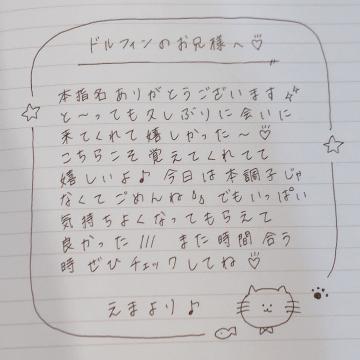 ドルフィンのお兄様へ♡
本指名ありがとうございます
と〜っても久しぶりに会いに
来てくれて嬉しかった〜♡
こちらこそ覚えてくれてて
嬉しいよ♪ 今日は本調子じゃ
なくてごめんね💦 でもいっぱい
気持ちよくなってもらえて
良かった/// また時間合う
時ぜひチェックしてね♡
えまより♪